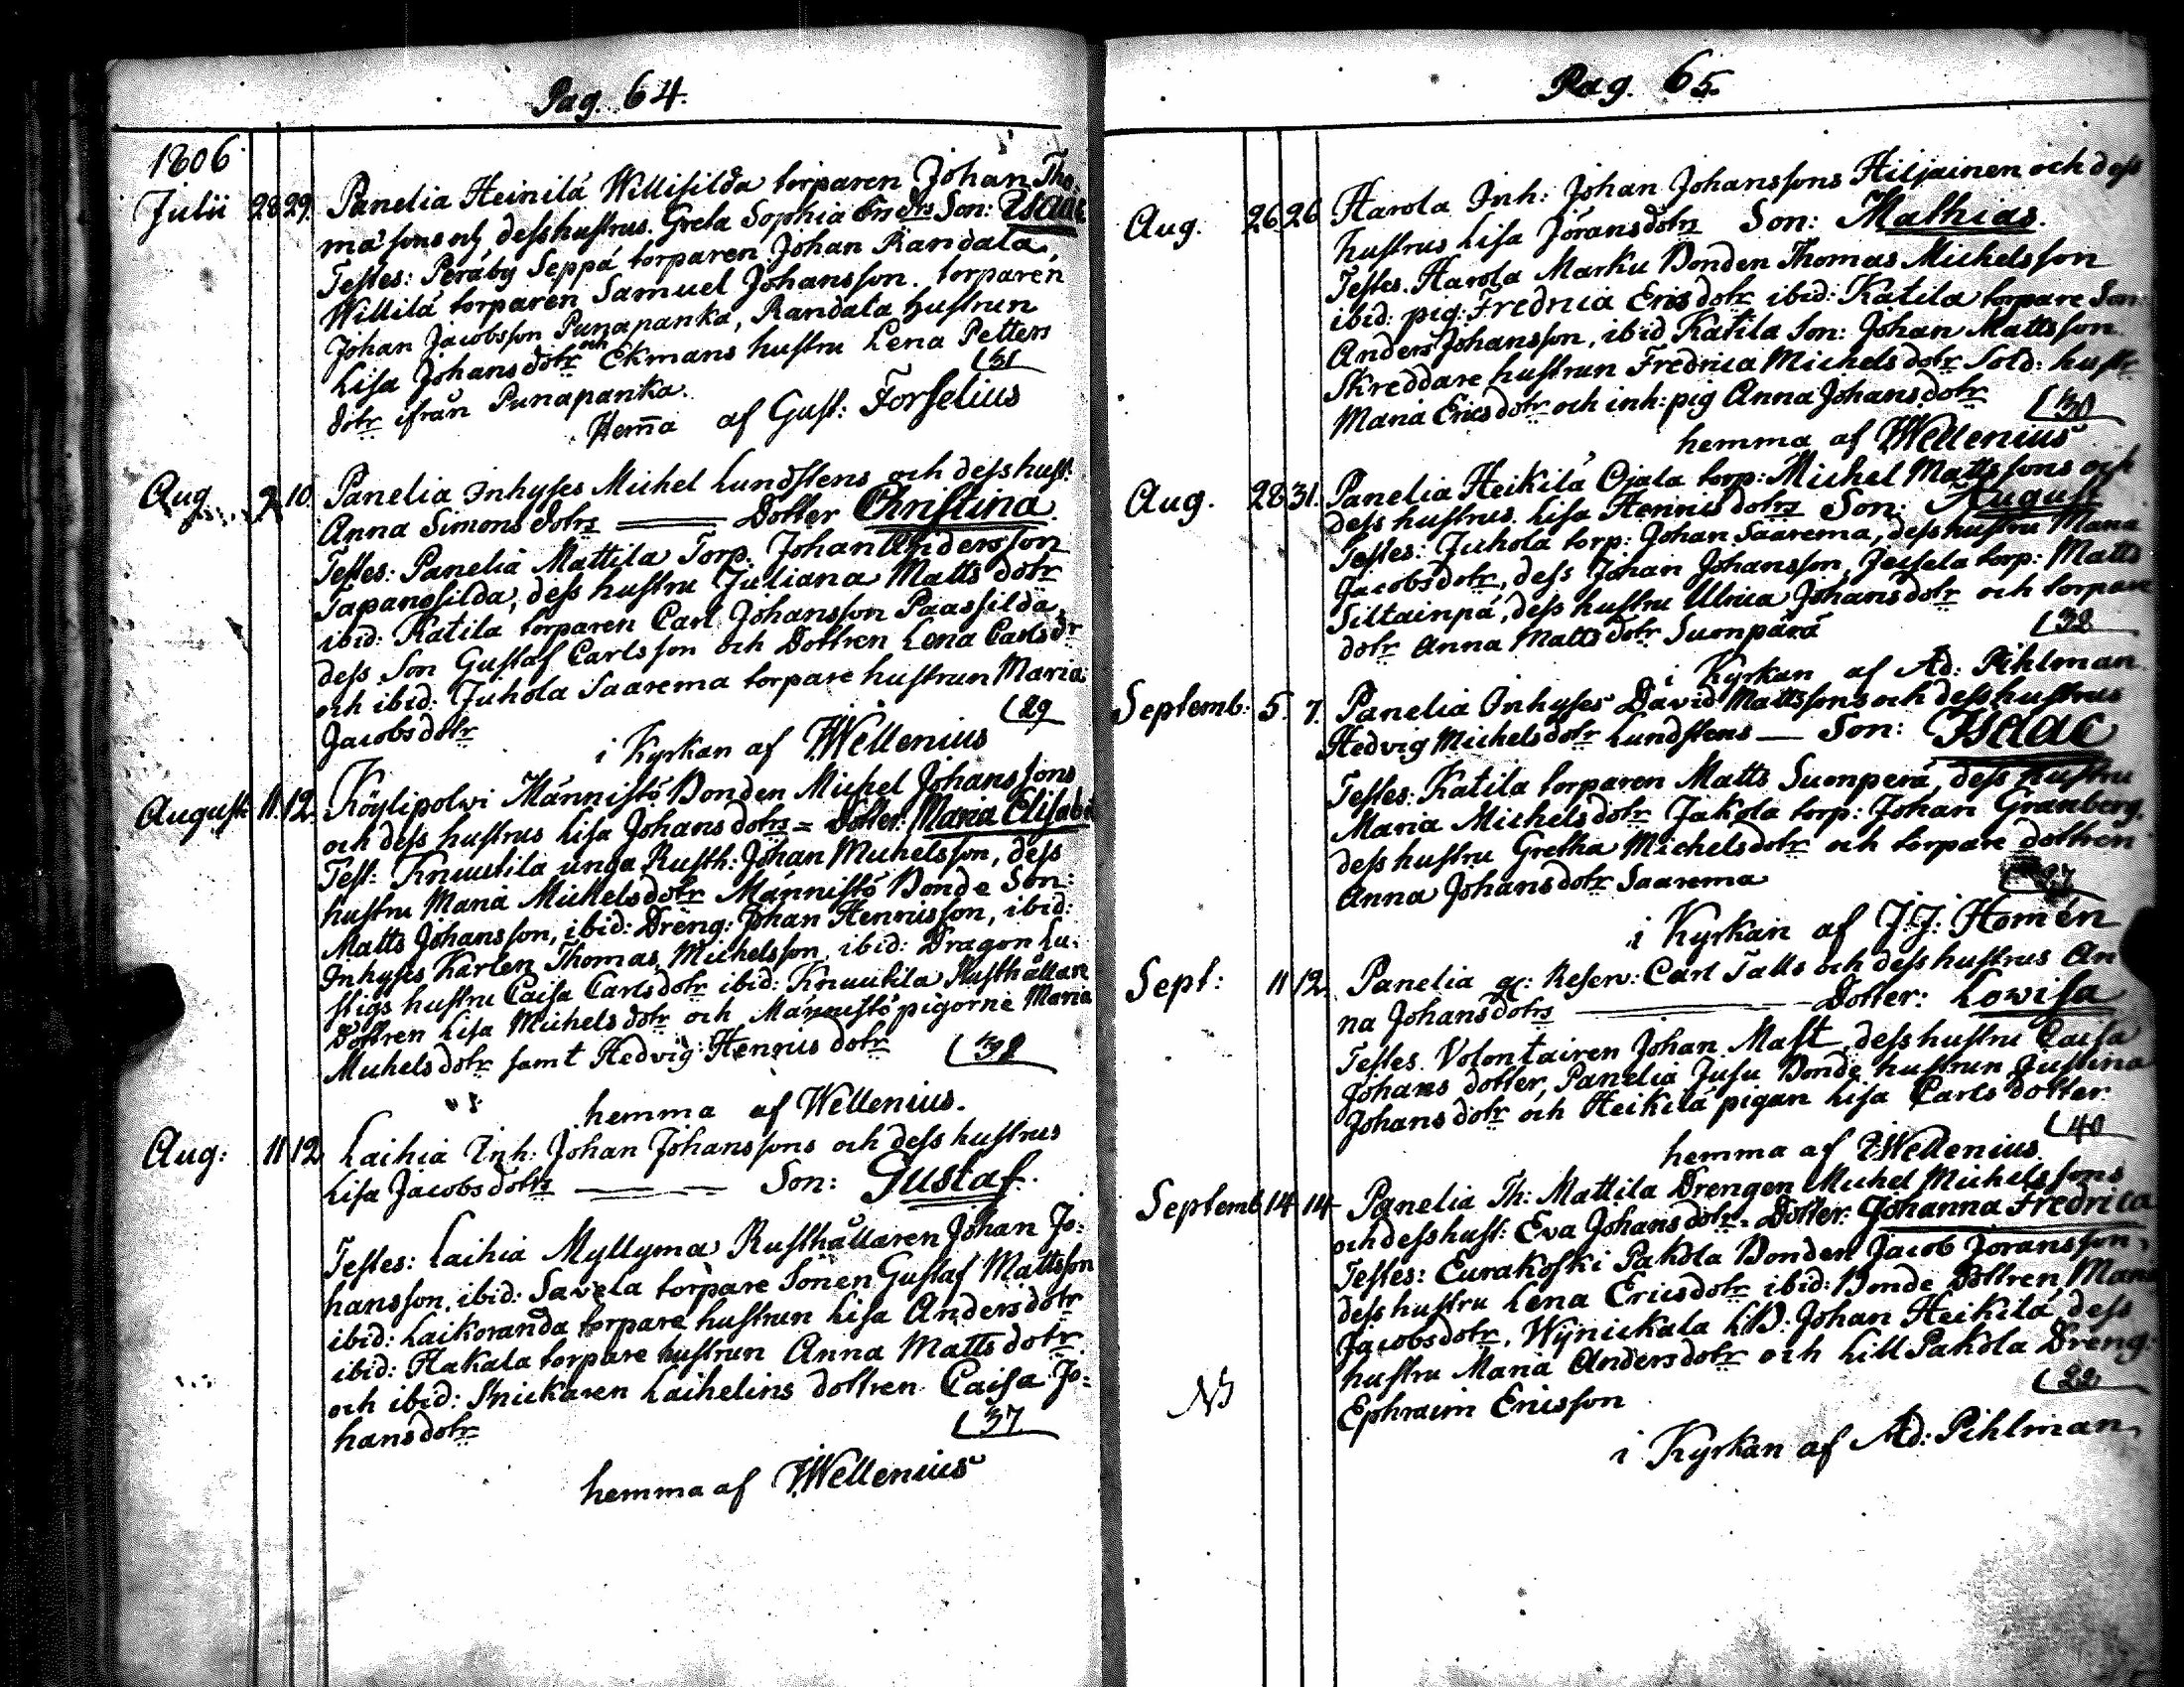 Pag. 64.
1806
Julii 28 29. Panelia Heinilä Willisilda torparen Johan Tho
masons och desshustrus Greta Sophia Son: Isaac
Testes: Peräby Seppä torparen Johan Randala,
Willilä torparen Samuel Johansson. torparen
Johan Jacobsson Punapanka, Randala hustrun
Lisa Johans dotr och Ekmans hustru Lena Petters
dotr ifrån Punapanka. 31
Hema af Gust: Forselius
Aug. 9 10. Panelia Inhyses Michel Lundstens och dess hust:
Anna Simons dotrs Dotter Christina.
Testes: Panelia Mattila Torp: Johan Andersson
Tapanosilda, dess hustru Juliana Matts dotr
ibid: Katila torparen Carl Johansson Paassilda,
dess Son Gustaf Carlsson och Dottren Lena Carlsdr
och ibid: Juhola Saarema torpare hustrun Maria
Jacobsdotr 29
i Kyrkan af Wellenius
August: 11. 12. Köylipolwi Männistö Bonden Michel Johanssons
och dess hustrus Lisa Johans dotrs = Dotter: Maria Elisabe
Test: Knuutila unga Rusth: Johan Michelsson, dess
hustru Maria Michelsdotr Männistö Bonde Son:
Matts Johansson, ibid: Dreng: Johan Hennisson, ibid:
Inhyses Karlen Thomas Michelsson, ibid: Dragon Lu:
stigs hustru Caisa Carlsdotr ibid: Knuutila Rusthållare
Dottren Lisa Michels dotr och Männistö pigorne Maria
Michelsdotr samt Hedvig Hennis dotr 38
hemma af Wellenius.
Aug: 11 12 Laihia Inh: Johan Johanssons och dess hustrus
Lisa Jacobs dotrs Son: Gustaf.
Testes: Laihia Myllyma Rusthållaren Johan Jo:
hansson, ibid: Savela torpare Sonen Gustaf Mattsson
ibid: Laikoranda torpare hustrun Lisa Andersdotr
ibid: Hakala torpare hustrun Anna Matts dotr
och ibid: Snickaren Laihelins dottren Caisa Jo:
hansdotr 37
hemma af Wellenius
Pag. 65.
Aug. 26 26 Harola Inh: Johan Johanssons Hiljainen och dess
hustrus Lisa Jöransdotrs Son: Mathias.
Testes. Harola Marku Bonden Thomas Michelsson
ibid: pig: Fredrica Ericsdotr ibid: Katila torpare Son:
Anders Johansson, ibid Katila Son: Johan Mattsson
Skreddare hustrun Fredrica Michelsdotr Sold: hustr
Maria Ericsdotr och inh: pig Anna Johansdotr 30
hemma af Wellenius
Aug. 28 31. Panelia Heikilä Ojala torp: Michel Mattssons och
dess hustrus Lisa Hennisdotrs Son: August
Testes: Juhola torp: Johan Saarema, dess hustru Maria
Jacobsdotr, dess Johan Johansson, torp: Matts
Siltainpä, dess hustru Ulrica Johansdotr och torpare
dotr Anna Mattsdotr Suonpärä 32
i Kyrkan af Ad: Pihlman
Septemb: 5. 7. Panelia Inhyses David Mattssons och dess hustrus
Hedvig Michelsdotr Lundstens — Son: Isaac
Testes: Katila torparen Matts Suonperä, dess hustru
Maria Michelsdotr Jakola torp: Johan Granberg,
dess hustru Gretha Michelsdotr och torpare dottren
Anna Johansdotr Saarema
i Kyrkan af J: J: Homén
Sept: 11 12 Panelia Reserv: Carl Talls och dess hustrus An
na Johansdotrs Dotter: Lowisa
Testes. Volontairen Johan Mast, dess hustru Caisa
Johans dotter, Panelia Jusu Bonde hustrun Justina
Johansdotr och Heikilä pigan Lisa Carls dotter.
40
hemma af Wellenius
Septemb 14 14 Panelia Th: Mattila Drengen Michel Michelssons
och dess hust: Eva Johansdotrs. Dotter: Johanna Fredrica
Testes: Eurakoski Pakola Bonden Jacob Joransson,
dess hustru Lena Ericsdotr ibid: Bonde Dottren Maria
Jacobsdotr, Wynickala LB: Johan Heikilä, dess
hustru Maria Andersdotr och Lill Pakola Dreng:
NB Ephraim Ericsson 22
i Kyrkan af Ad: Pihlman